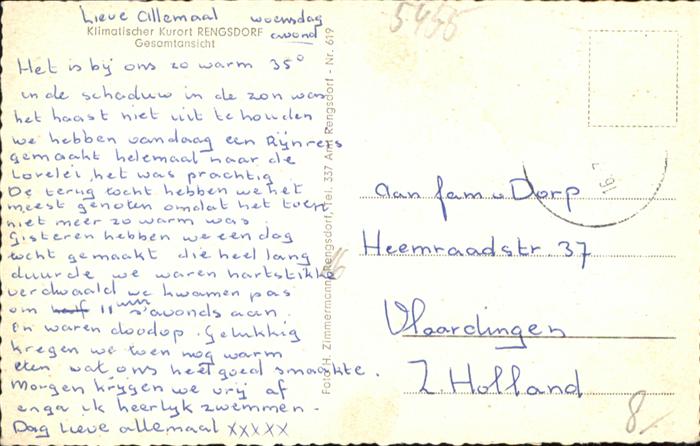 Lieve Allemaal woensdag
avond
Klimatischer Kurort RENGSDORF
Gesamtansicht
Het is bij ons zo warm 35°
in de schaduw in de zon was
het haast niet uit te houden
we hebben vandaag een Rijnreis
gemaakt helemaal naar de
Lorelei het was prachtig
De terug tocht hebben we het
meest genoten omdat het toen
niet meer zo warm was.
Gisteren hebben we een dag
tocht gemaakt die heel lang
duurde we waren hartstikke
verdwaald we kwamen pas
om half 11 uur s'avonds aan.
En waren doodop. Gelukkig
kregen we toen nog warm
eten wat ons heel goed smaakte.
Morgen krijgen we vrij af
en ga ik heerlijk zwemmen.
Dag Lieve allemaal xxxxx
Foto H. Zimmermann, Rengsdorf, Tel. 337 Amt Rengsdorf - Nr. 619
5456
aan fam v Dorp
Heemraadstr. 37
Vlaardingen
Z. Holland
8/-